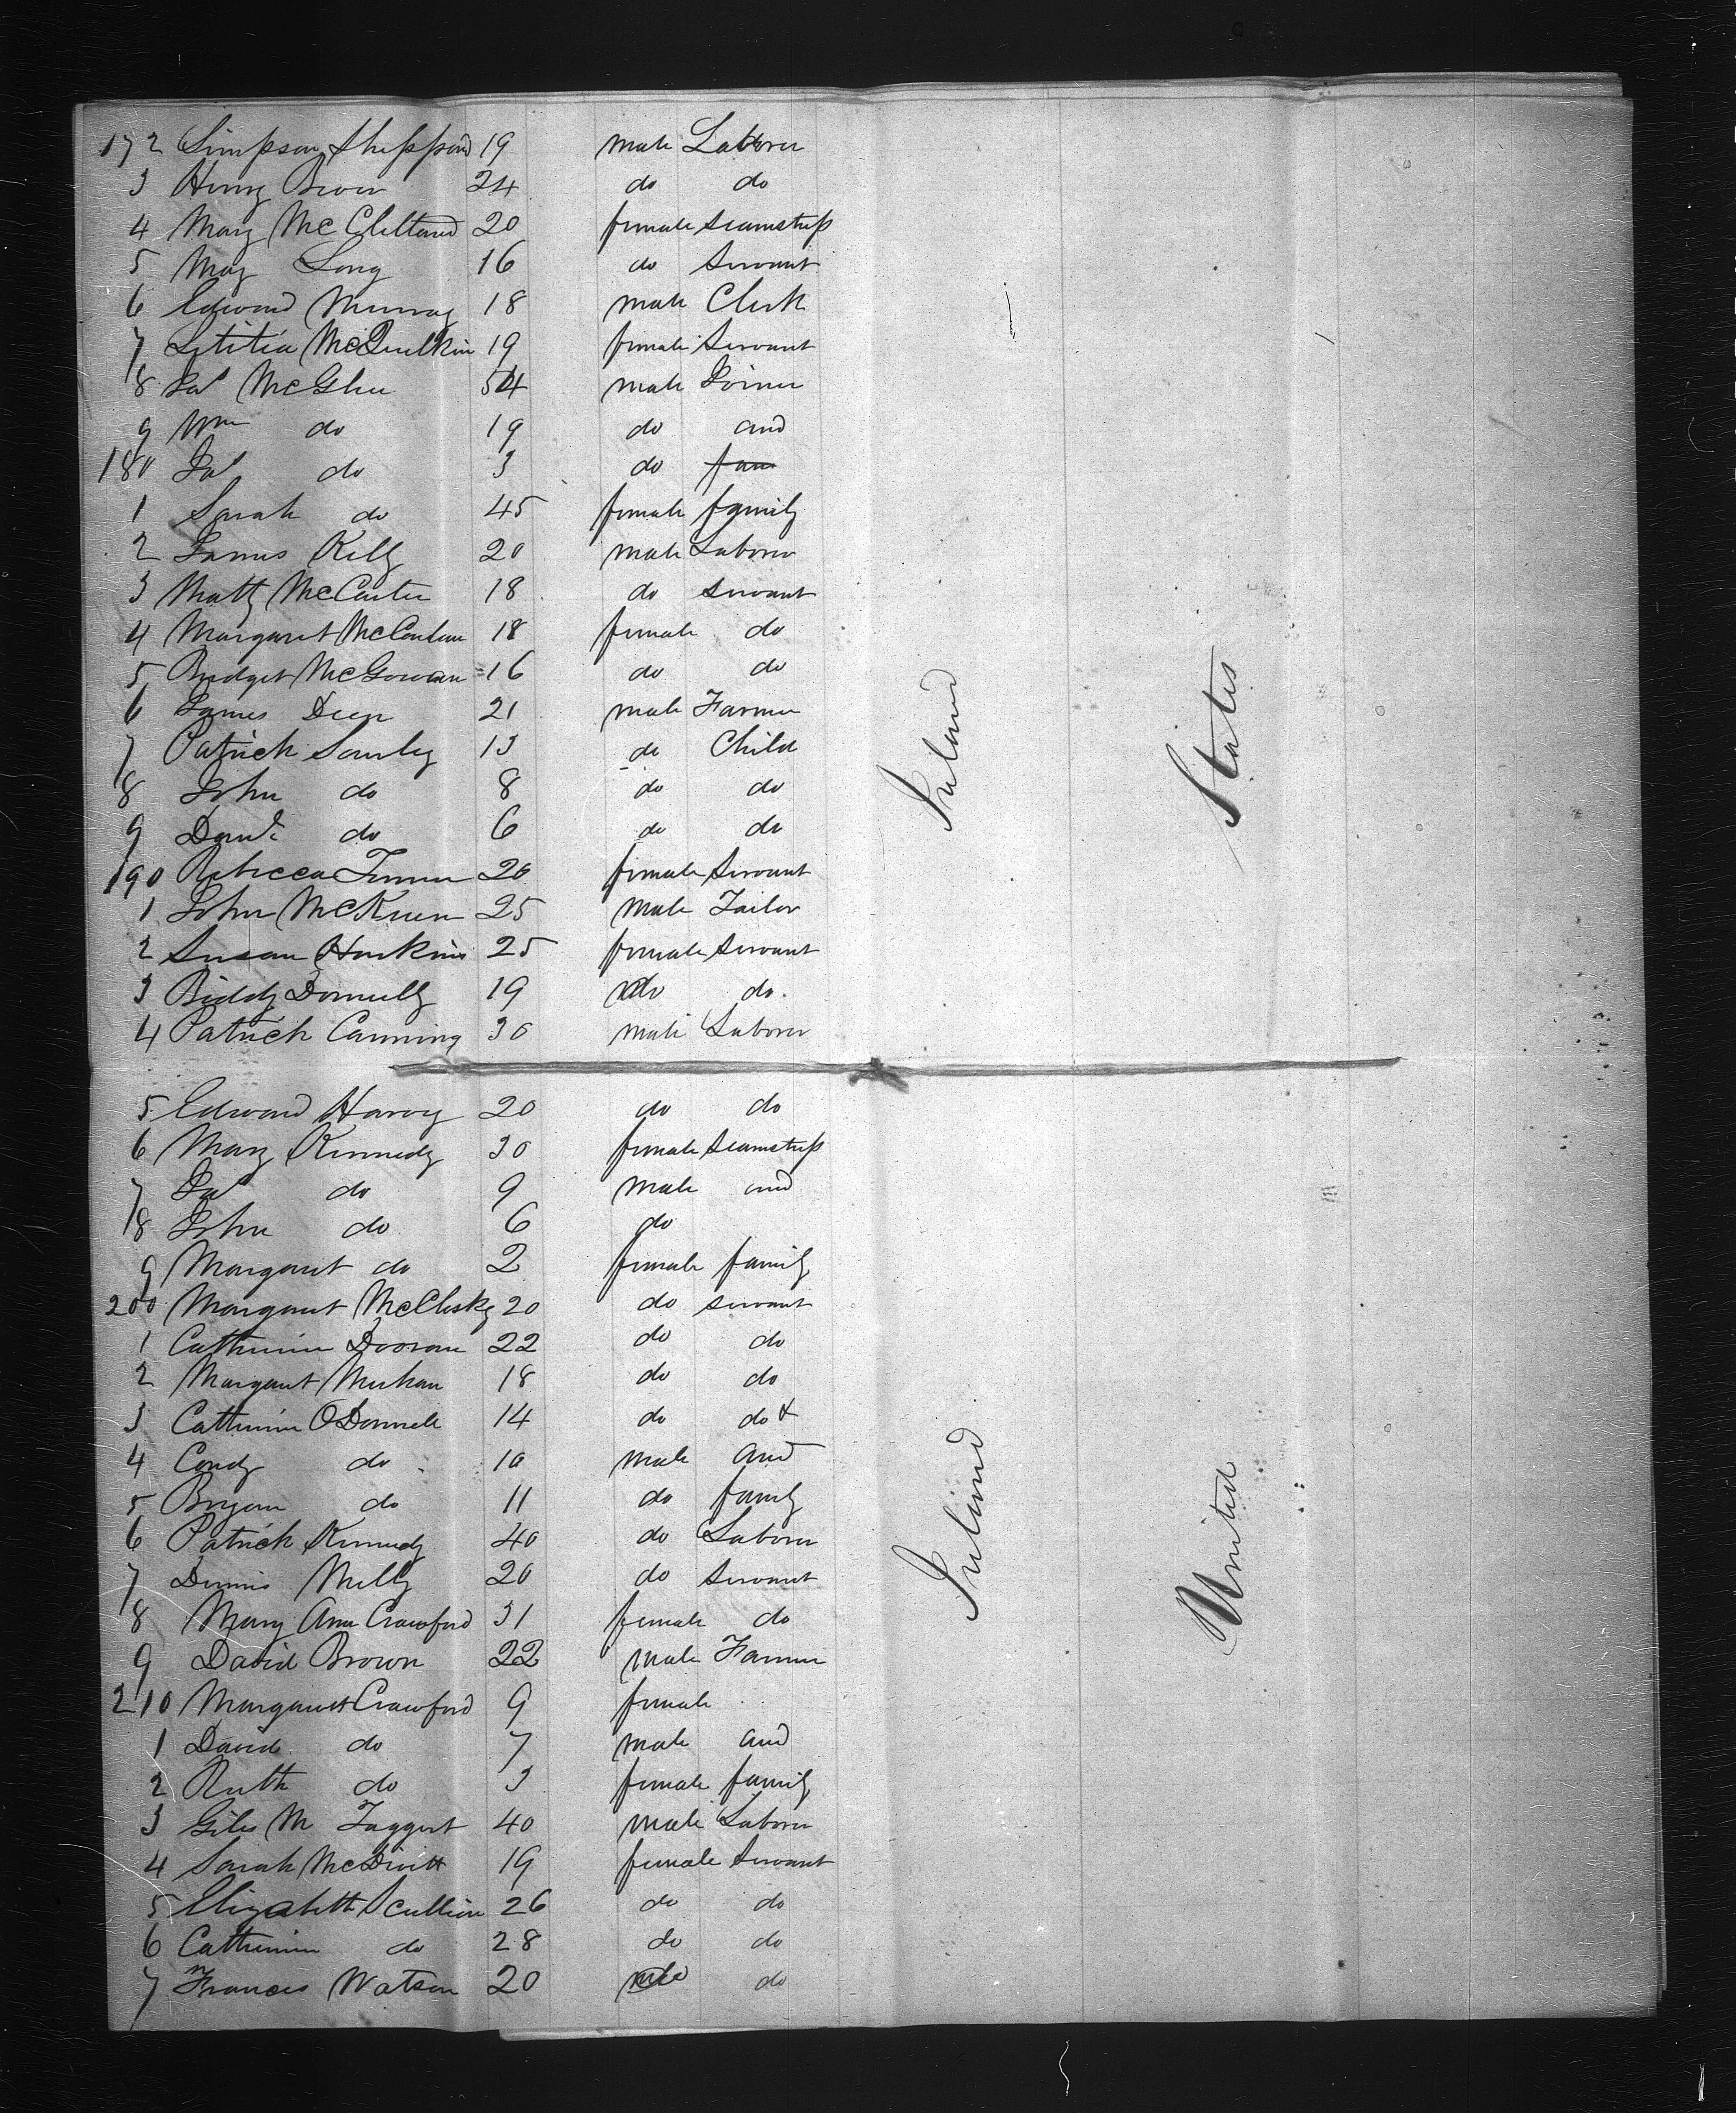 172 Simpson Sheppard 19 male Laborer
3 Henry Brown 24 do do
4 Mary McClelland 20 female seamstress
5 May Long 16 do servant
6 Edward Murray 18 male Clerk
7 Letitia McQuilkin 19 female Servant
8 Jas McGhee 54 male Joiner
9 Wm do 19 do and
180 Jas do 3 do fam
1 Sarah do 45 female family
2 James Kelly 20 male Laborer
3 Matty McCarter 18 do servant
4 Margaret 18 female do
5 Bridget McGowan 16 do do
6 James Deen 21 male Farmer
7 Patrick 13 do Child
8 John do 8 do do
9 Danl do 6 do do
190 Rebecca 20 female Servant
1 John McKuen 25 male Tailor
2 Susan Harkins 25 female Servant
3 Biddy Donnelly 19 do do.
4 Patrick Canning 30 male Laborer
5 Edward Harvy 20 do do
6 Mary Kennedy 30 female seamstress
7 Jas do 9 male and
8 John do 6 do
9 Margaret do 2 female family
200 Margaret McClosky 20 do servant
1 Catherine Dooran 22 do do
2 Margaret Meehan 18 do do
3 Catherine O'Donnell 14 do do &
4 Condy do 10 male and
5 Bryan do 11 do family
6 Patrick Kennedy 40 do Laborer
7 Dennis Melly 20 do servant
8 Mary Ann Crawford 31 female do
9 David Brown 22 male Farmer
210 Margarett Crawford 9 female
1 David do 7 male and
2 Ruth do 3 female family
3 Giles M Taggert 40 male Laborer
4 Sarah McDivitt 19 female Servant
5 Elizabeth Scullion 26 do do
6 Catherine do 28 do do
7 Frances Watson 20 do
Ireland
States
Ireland
United